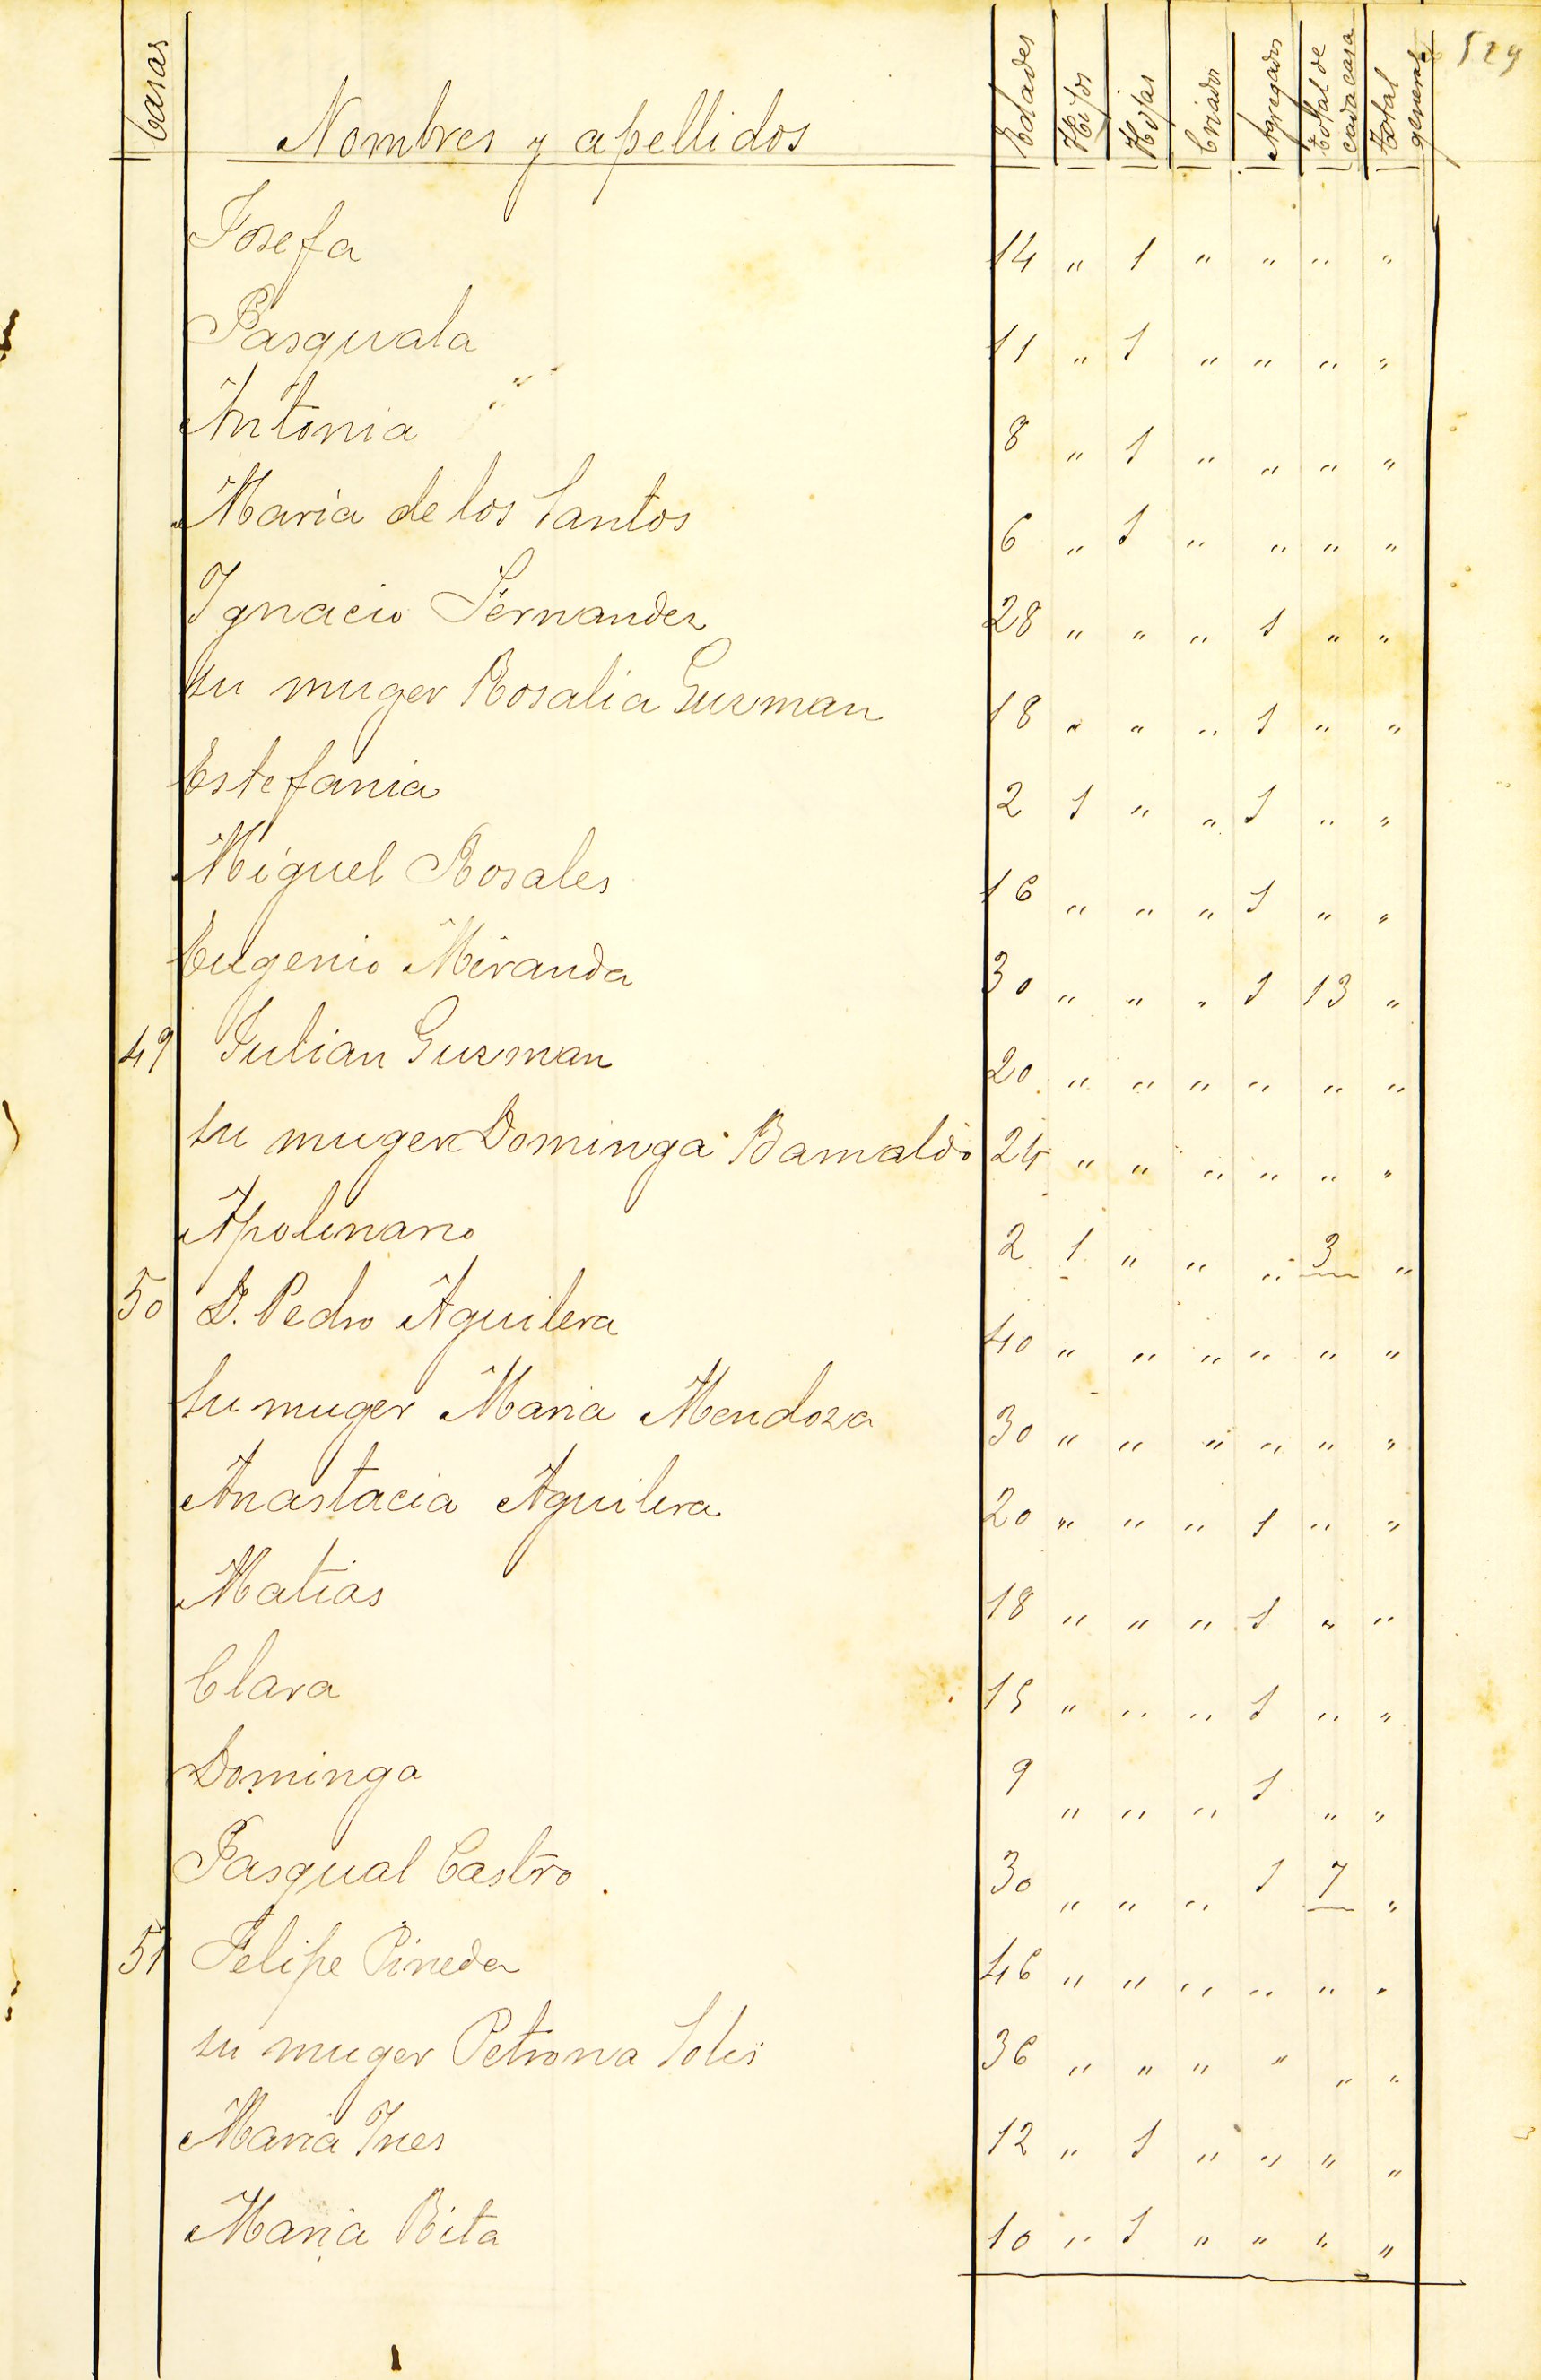 529
Casas Nombres y apellidos Edades Hijos Hijas Criados Agregados Total de cada casa Total general
Josefa 14 " 1 " " " "
Pasquala 11 " 1 " " " "
Antonia 8 " 1 " " " "
Maria de los Santos 6 " 1 " " " "
Ygnacio Fernandez 28 " " " 1 " "
su muger Rosalia Guzman 18 " " " 1 " "
Estefania 2 1 " " 1 " "
Miguel Rosales 16 " " " 1 " "
Eugenio Miranda 30 " " " 1 13 "
49 Julian Guzman 20 " " " " " "
su muger Dominga Bamaldo 24 " " " " " "
Apolinario 2 1 " " " 3 "
50 D. Pedro Aguilera 40 " " " " " "
su muger Maria Mendoza 30 " " " " " "
Anastacia Aguilera 20 " " " 1 " "
Matias 18 " " " 1 " "
Clara 15 " " " 1 " "
Dominga 9 " " " 1 " "
Pasqual Castro 30 " " " 1 7 "
51 Felipe Pineda 46 " " " " " "
su muger Petrona Solis 36 " " " " " "
Maria Ynes 12 " 1 " " " "
Maria Rita 10 " 1 " " " "